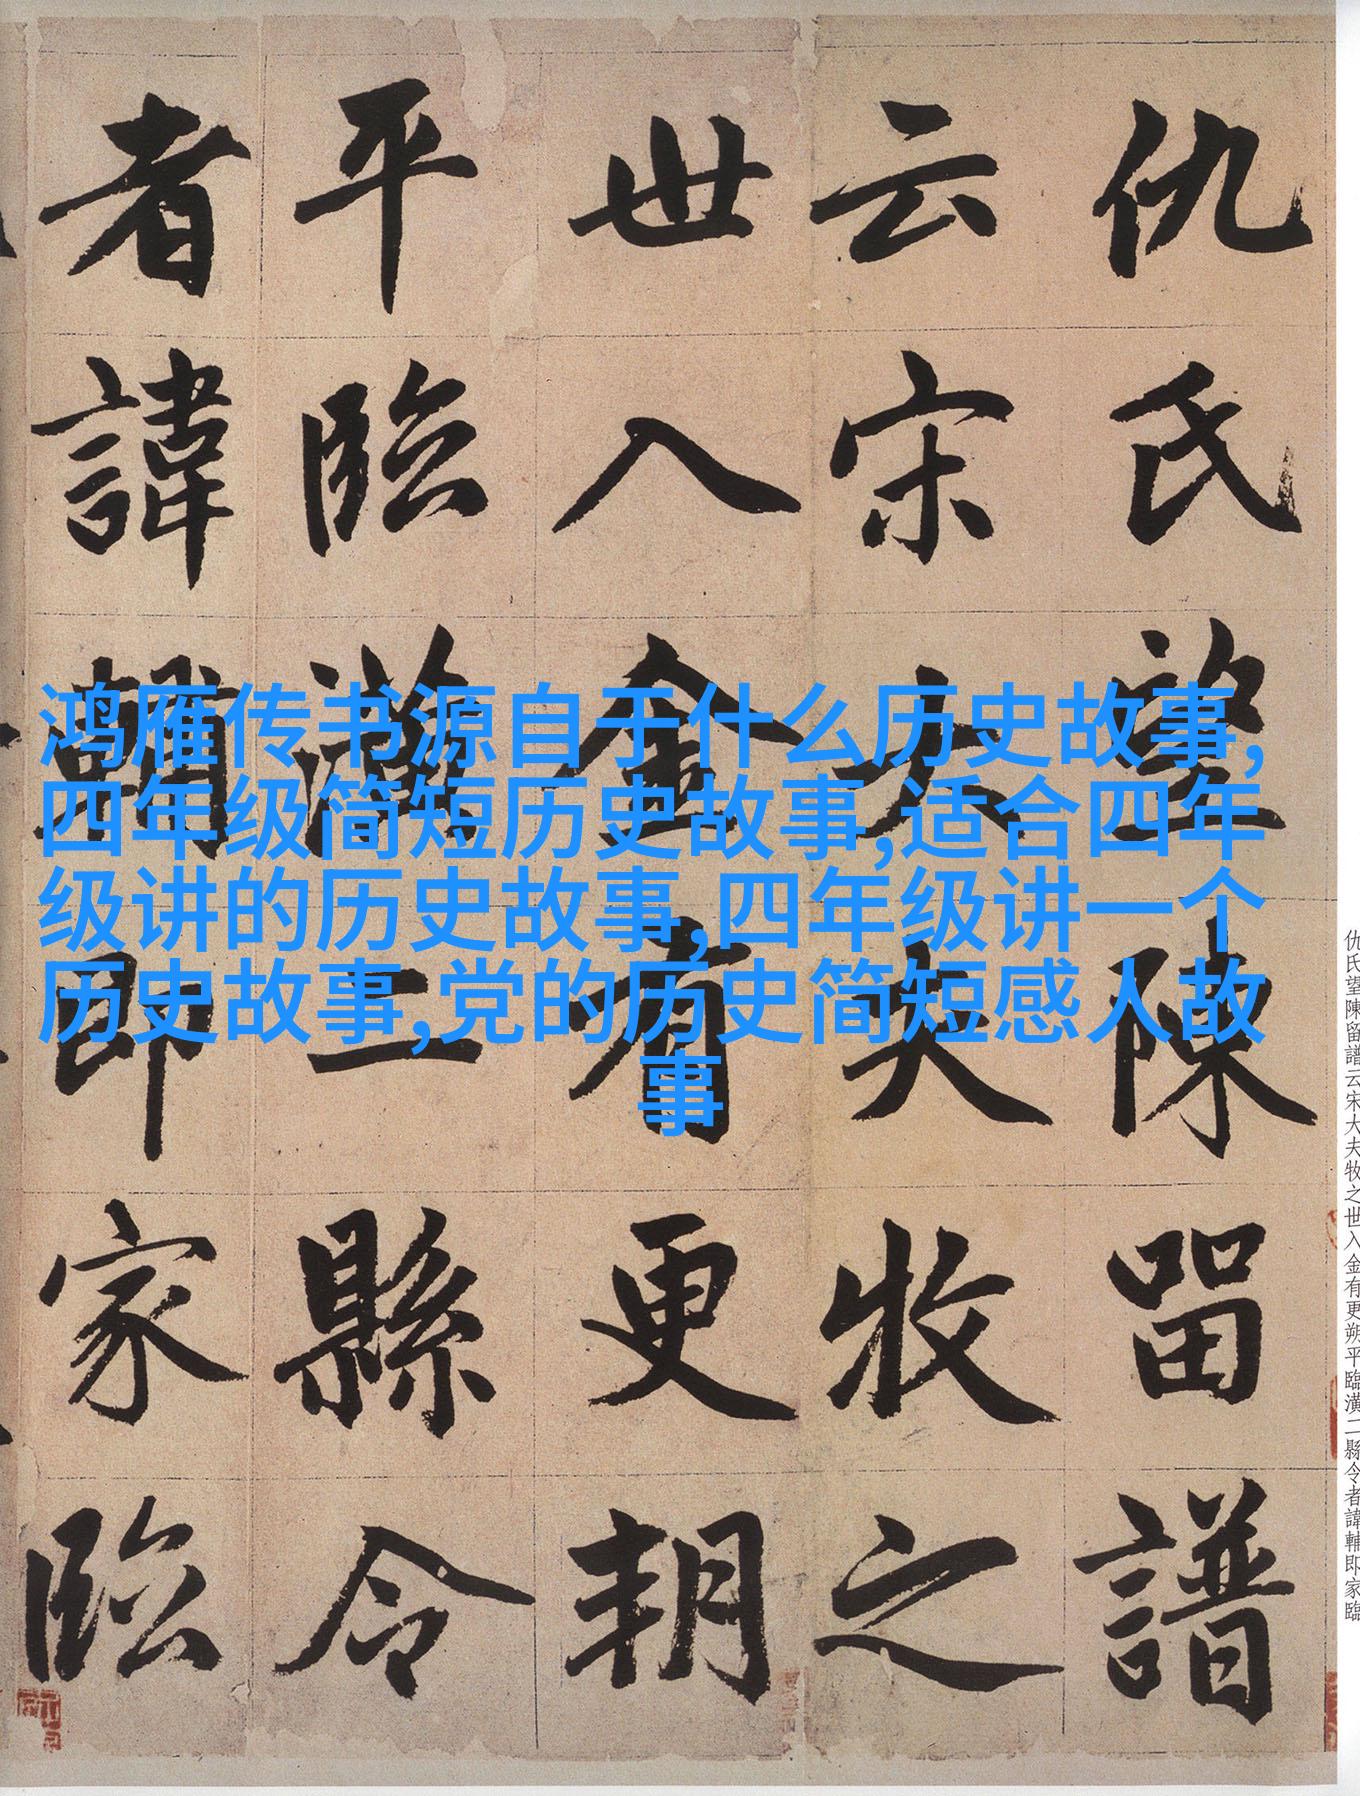 仇氏望陳留譜
云宋大夫牧之
世入金有更朔
平臨潢二縣令
者諱輔即家臨
鸿雁传书源自于什么历史故事,
四年级简短历史故事,适合四年
级讲的历史故事,四年级讲一个
历史故事,党的历史简短感人故
事
仇氏望陳留譜云宋大夫牧之世入金有更朔平臨潢二縣令者諱輔即家臨